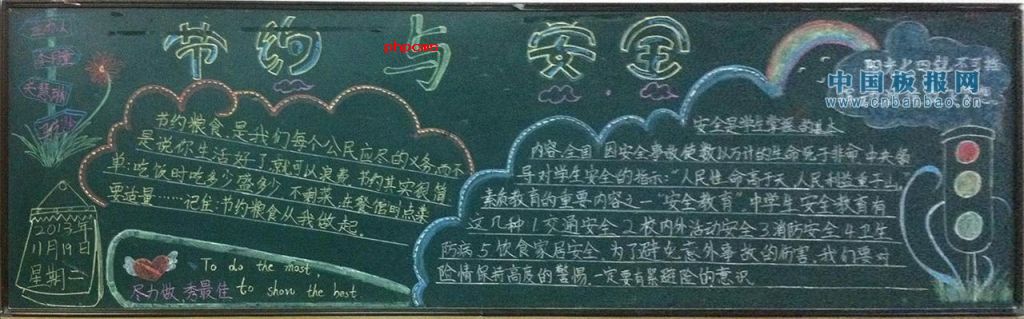 节约与安全
phpcms
中国板报网
www.cnbanbao.cn
节约粮食,是我们每个公民应尽的义务,而不
是说你生活好了就可以浪费.节约其实很简
单:吃饭时吃多少盛多少,不剩菜,在餐馆时点菜
要适量……记住:节约粮食从我做起
2013年
11月19日
星期二
To do the most
尽力做,秀最佳 to show the best
安全是学生掌握的基本
内容,全国因安全事故使数以万计的生命死于非命.中央领
导对学生安全的指示:"人民生命高于天,人民利益重于山."
素质教育的重要内容之一"安全教育".中学生安全教育有
这几种1交通安全2校内外活动安全3消防安全4卫生
防病5饮食家居安全.为了避免意外事故的伤害,我们要对
险情保持高度的警惕,一定要有紧避险的意识